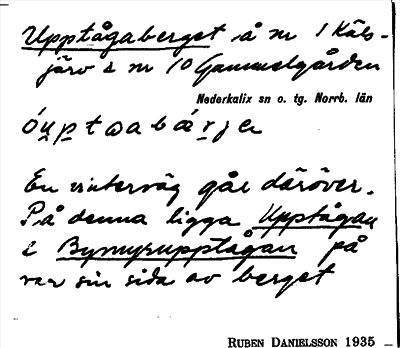 Upptågaberget å nr 1 Käls-
järv & nr 10 Gammelgården
Nederkalix sn o. tg. Norrb. län
En vinterväg går däröver.
På denna ligga Upptågan
& Bymyrupptågan på
var sin sida av berget
RUBEN DANIELSSON 1935